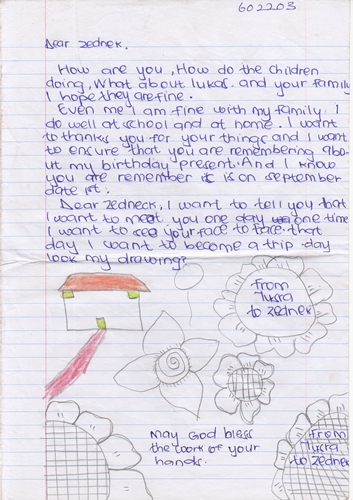 602203
Dear zednek.
How are you, How do the children
doing, What about lukas. and your family
I hope they are fine.
Even me I am fine with my family. I
do well at school and at home. I want
to thanks you for your things and I want
to ensure that you are remembering abo-
ut my birthday present. And I know
you are remember is on september
date 1st.
Dear Zedneck, I want to tell you that
I want to meet you one day one time
I want to see your face to face. that
day I want to become a trip day
look my drawing?
From
to zednek
May God bless
the work of your
hands.
From
to zednek